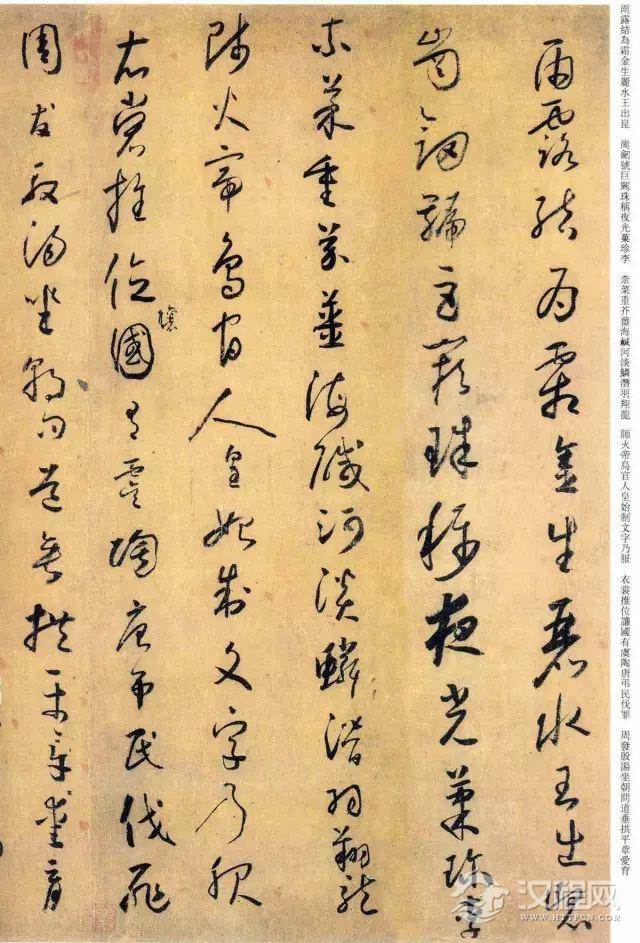 雨露結為霜金生麗水王出崑　崗劒號巨闕珠稱夜光菓珍李　柰菜重芥薑海鹹河淡鱗潛羽翔龍　師火帝鳥官人皇始制文字乃服　衣裳推位讓國有虞陶唐弔民伐罪　周發殷湯坐朝問道垂拱平章愛育
雨露結為霜金生麗水玉出崑
崗劒號巨闕珠稱夜光菓珍李
柰菜重芥薑海鹹河淡鱗潛羽翔龍
師火帝鳥官人皇始制文字乃服
衣裳推位讓國有虞陶唐弔民伐罪
周發殷湯坐朝問道垂拱平章愛育
汉程网
WWW.HTTPCN.COM